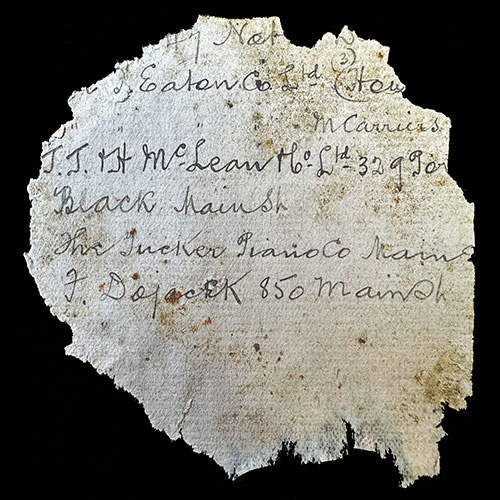 47 Not
T. Eaton Co. Ltd. (3) (How
McCarries
J. J. & H McLean & Co. Ltd. 329 Por
Black Main St
The Tucker Piano Co Main S
F. Dojacek 850 Main St